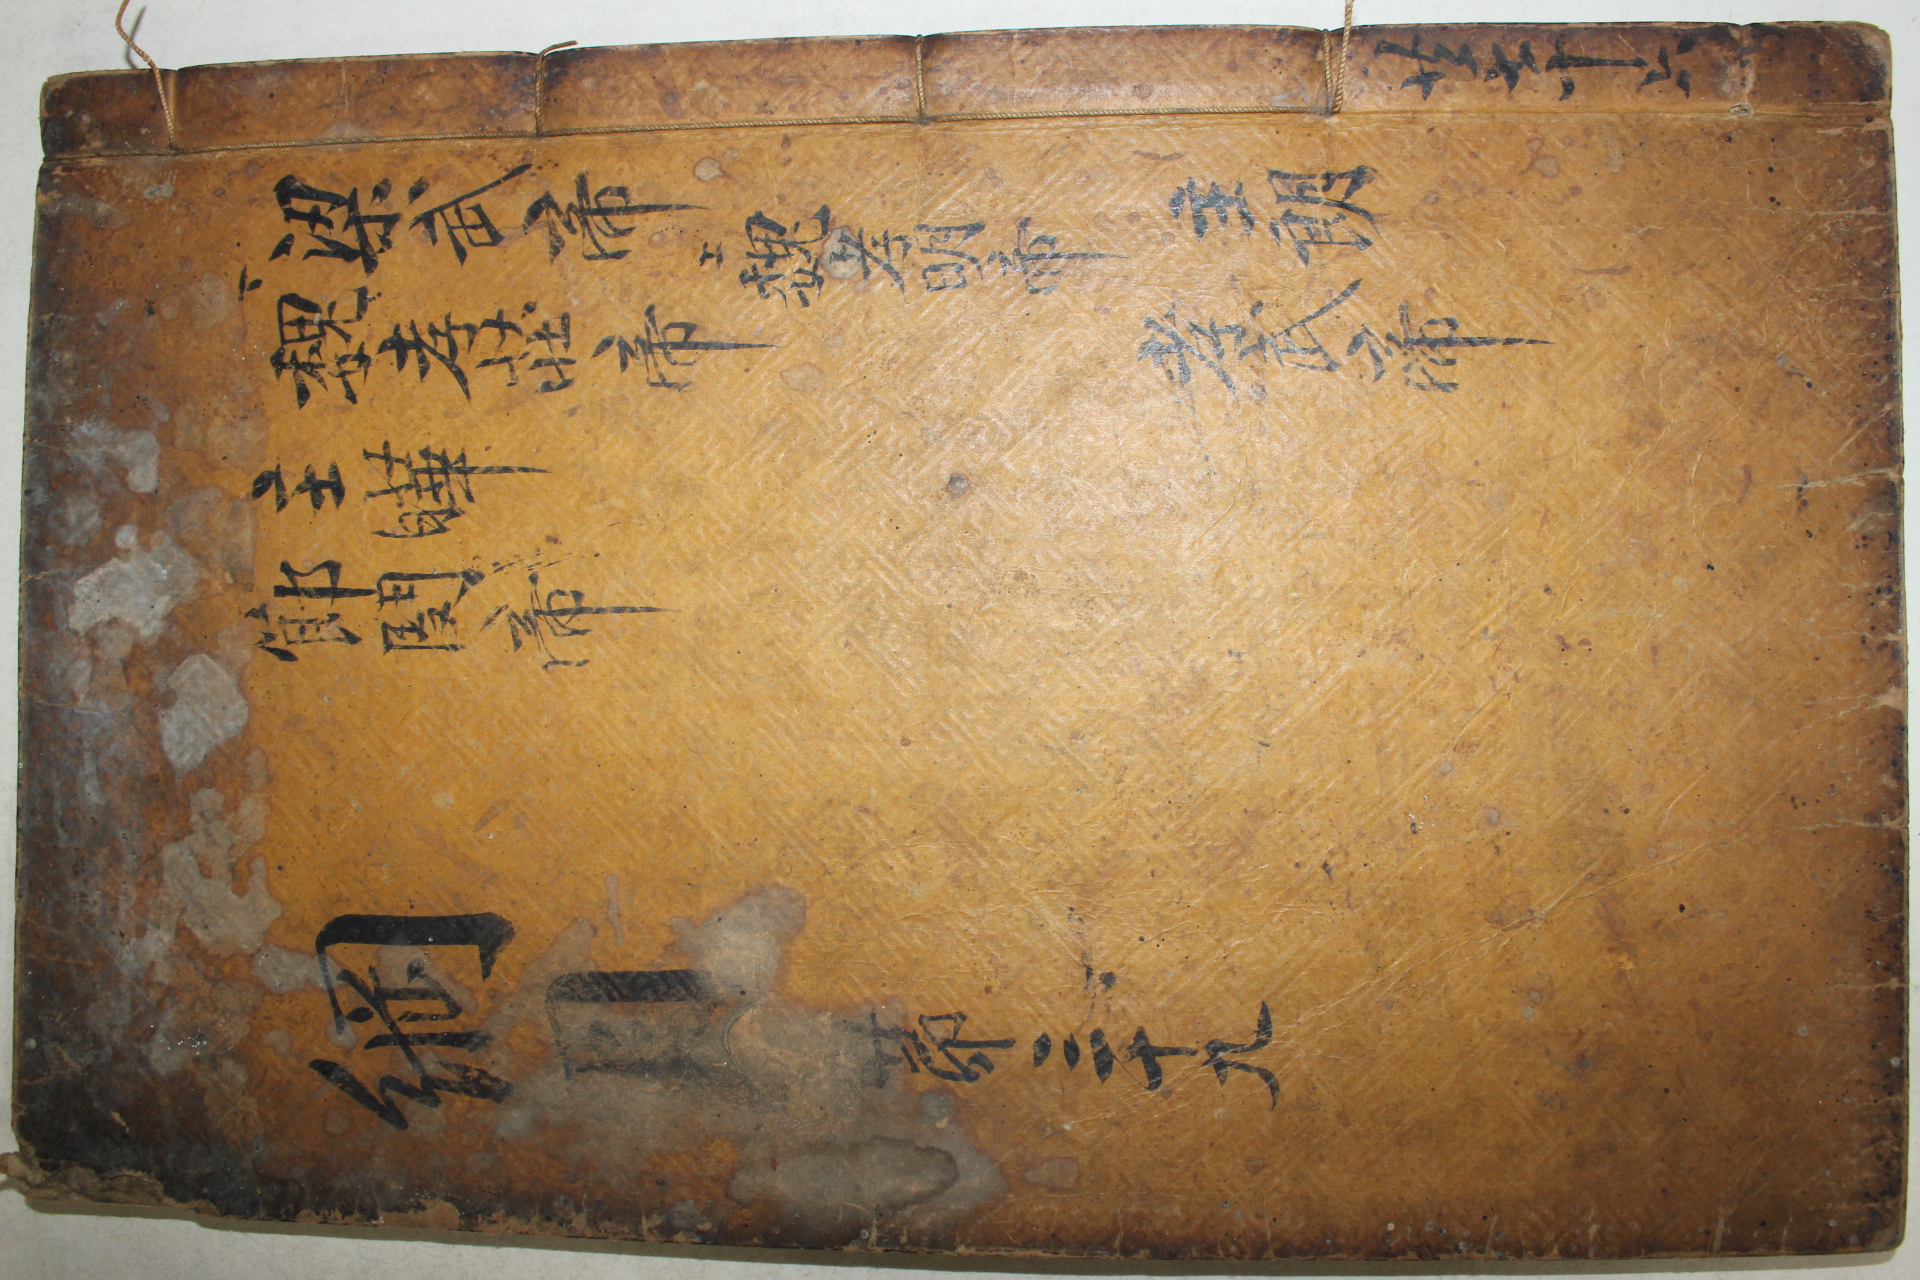 共七十六
梁武帝
魏孝明帝
主朗
魏孝莊帝
孝武帝
主曄
節閔帝
綱目 苐三十九